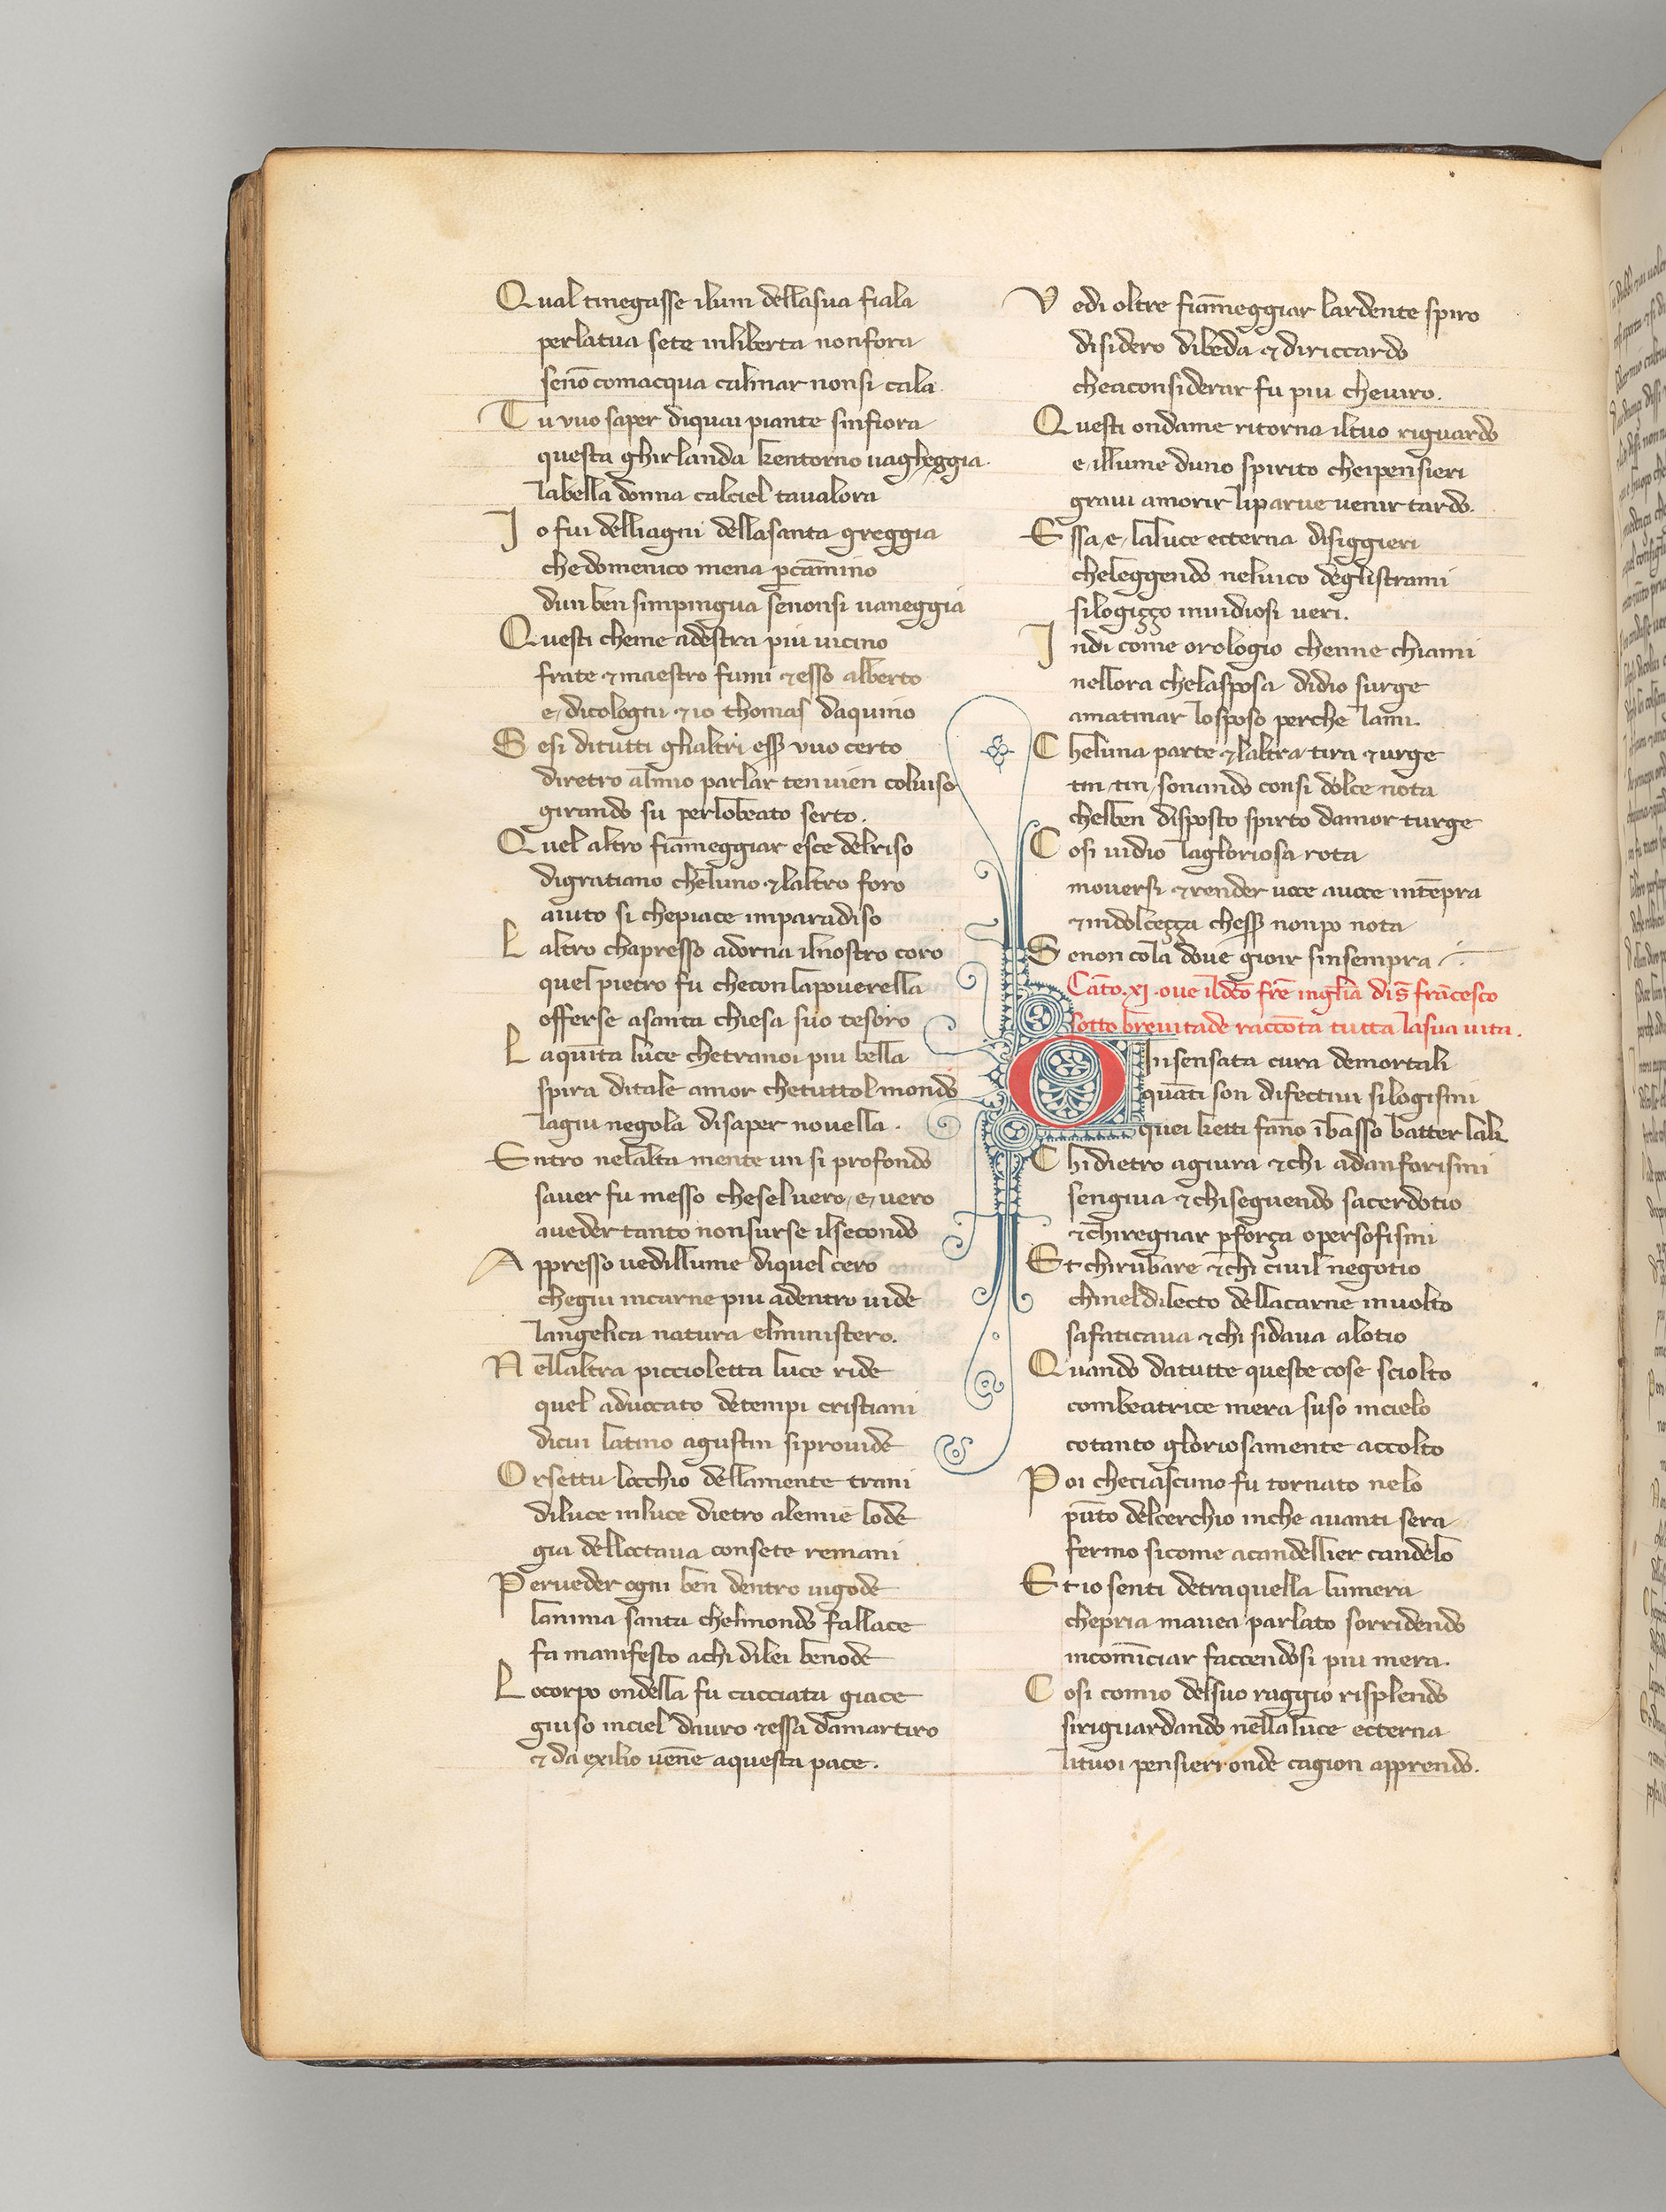 Qual tinegasse iluin dellasua fiala
perlatua sete inliberta nonfora
senō comacqua calmar nonsi cala.
Tu vuo saper diquai piante sinfiora
questa ghirlanda kentorno uagheggia.
labella donna calciel tavalora
Io fui delliagni dellasanta greggia
chedomenico mena p camino
dun ben simpingua senonsi uaneggia
Questi cheme adestra piu uicino
frate & maestro fumi & esso alberto
e, dicologni & io thomas daquino
Se si ditutti ghaltri esser vuo certo
diretro almio parlar tenuien coluiso
girando su perlobeato serto.
Quel altro fiāmeggiar esce delriso
digratiano cheluno & laltro foro
aiuto si chepiace imparadiso
Laltro chapresso adorna ilnostro coro
quel pietro fu checon lapouerella
offerse asanta chiesa suo tesoro
Laquīta luce chetranoi piu bella
spira ditale amor chetuttol mondo
lagiu negola disaper nouella.
Entro nelalta mente un si profondo
sauer fu messo cheseluero, e, uero
aueder tanto nonsurse ilsecondo
Appresso uedillume diquel cero
chegiu incarne piu adentro uide
langelica natura elministero.
Nellaltra piccioletta luce ride
quel aduocato detempi cristiani
dicui latino agustin siprouide
Orsettu locchio dellamente trani
diluce inluce dietro alemie lode
gia dellottaua consete remani
Perueder ogni ben dentro uigode
lanima santa chelmondo fallace
fa manifesto achi dilei benode
Locorpo ondella fu cacciata giace
giuso inciel dauro & essa damartiro
& da exilio uenne aquesta pace.
Vedi oltre fiāmeggiar lardente spiro
disidero dibeda & diriccardo
cheaconsiderar fu piu cheuiro.
Questi ondame ritorna iltuo riguardo
e, illume duno spirito cheipensieri
graui amorir liparue uenir tardo.
Essa, e, laluce etterna disiggieri
cheleggendo neluico deglistrami
silogizzo inuidiosi ueri.
Indi come orologio chenne chiami
nellora chelasposa didio surge
amatinar losposo perche lami.
Cheluna parte & laltra tira & urge
tin tin sonando consi dolce nota
chelben disposto spirto damor turge
Cosi uidio lagloriosa rota
mouersi & render uoce auoce intēpra
& indolcezza chesser nonpo nota
Senon cola doue gioir sinsempra
Cāto. xi. oue ildco fre inghlia dis frācesco
sotto breuitade raccōta tutta lasua uita.
O Insensata cura demortali
quāti son difectiui silogismi
quei ketti fāno ībasso batter lali.
Chi dietro agiura & chi adanforismi
sengiua & chi seguendo sacerdotio
& chiregnar pforça o persofismi
Et chirubare & chi ciuil negotio
chineldilecto dellacarne inuolto
safaticaua & chi sidaua alotio
Quando datutte queste cose sciolto
combeatrice mera suso incielo
cotanto gloriosamente accolto
Poi checiascuno fu tornato nelo
pūto delcerchio inche auanti sera
fermo sicome acandellier candelo
Et io senti detraquella lumera
chepria mauea parlato sorridendo
incomīciar faccendosi piu mera.
Cosi comio delsuo raggio risplendo
siriguardando nellaluce etterna
lituoi pensieri onde cagion apprendo.